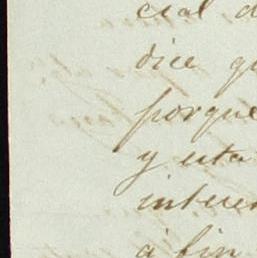 cial d
dice qu
porque
y esta
interes
á fin